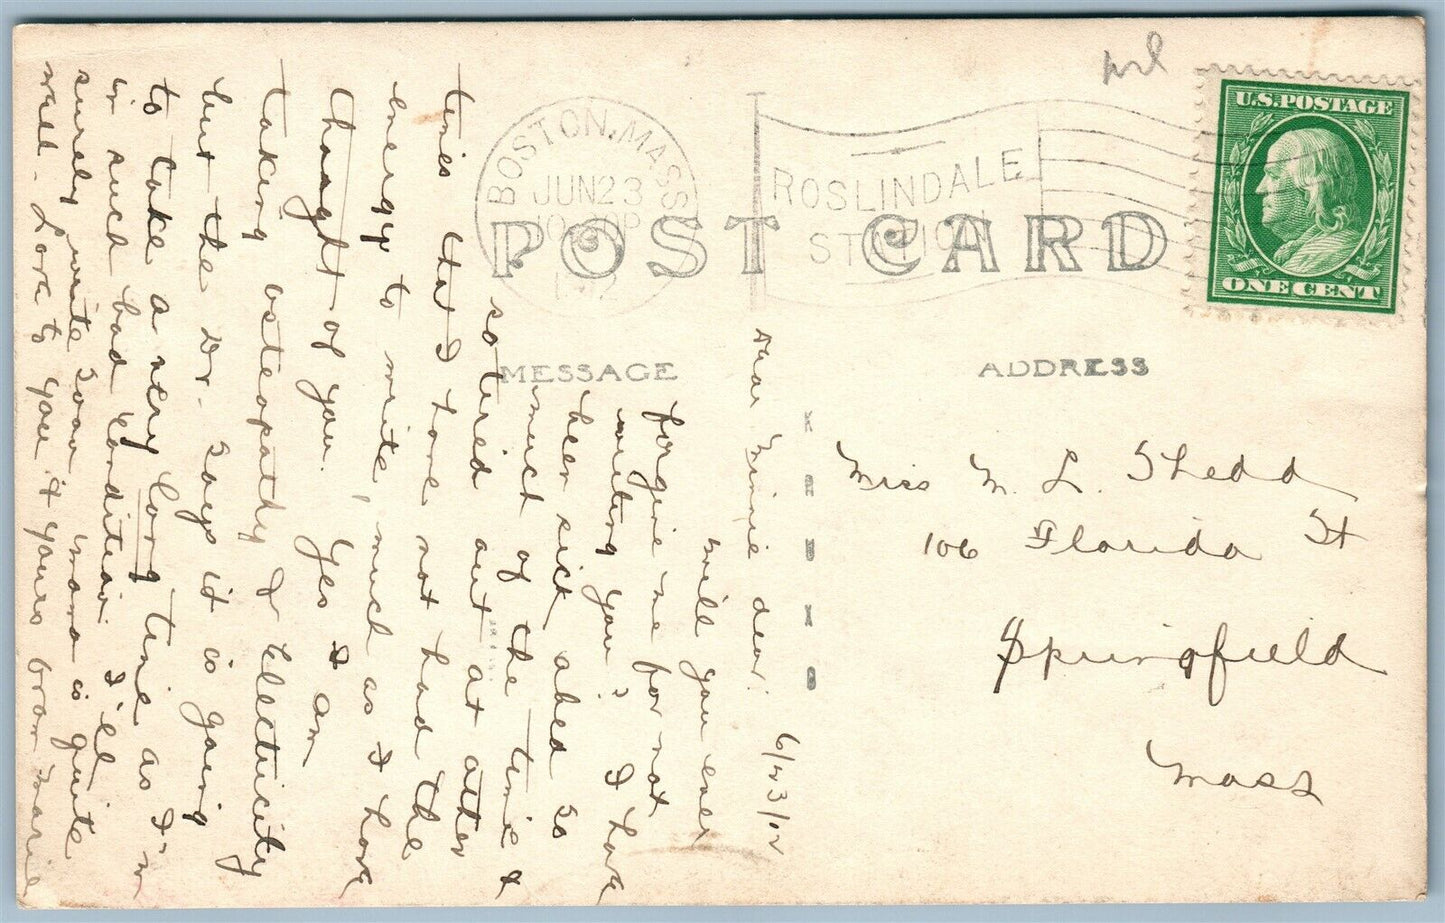 prl
U.S.POSTAGE
ONE CENT
BOSTON, MASS
JUN 23
1912
ROSLINDALE
STATION
POST CARD
MESSAGE
ADDRESS
6/23/12
Dear Minnie dear:
will you ever
forgive me for not
writing you? I have
been sick abed so
much of the time &
so tired out at other
times that I have not had the
energy to write, much as I have
thought of you. Yes I am
taking osteopathy & electricity
but the Dr. says it is going
to take a very long time as I'm
in such bad condition. I'll
surely write soon. Mama is quite
well. Love to you & yours from Marie
Miss M. L. Shedd
106 Florida St
Springfield
Mass